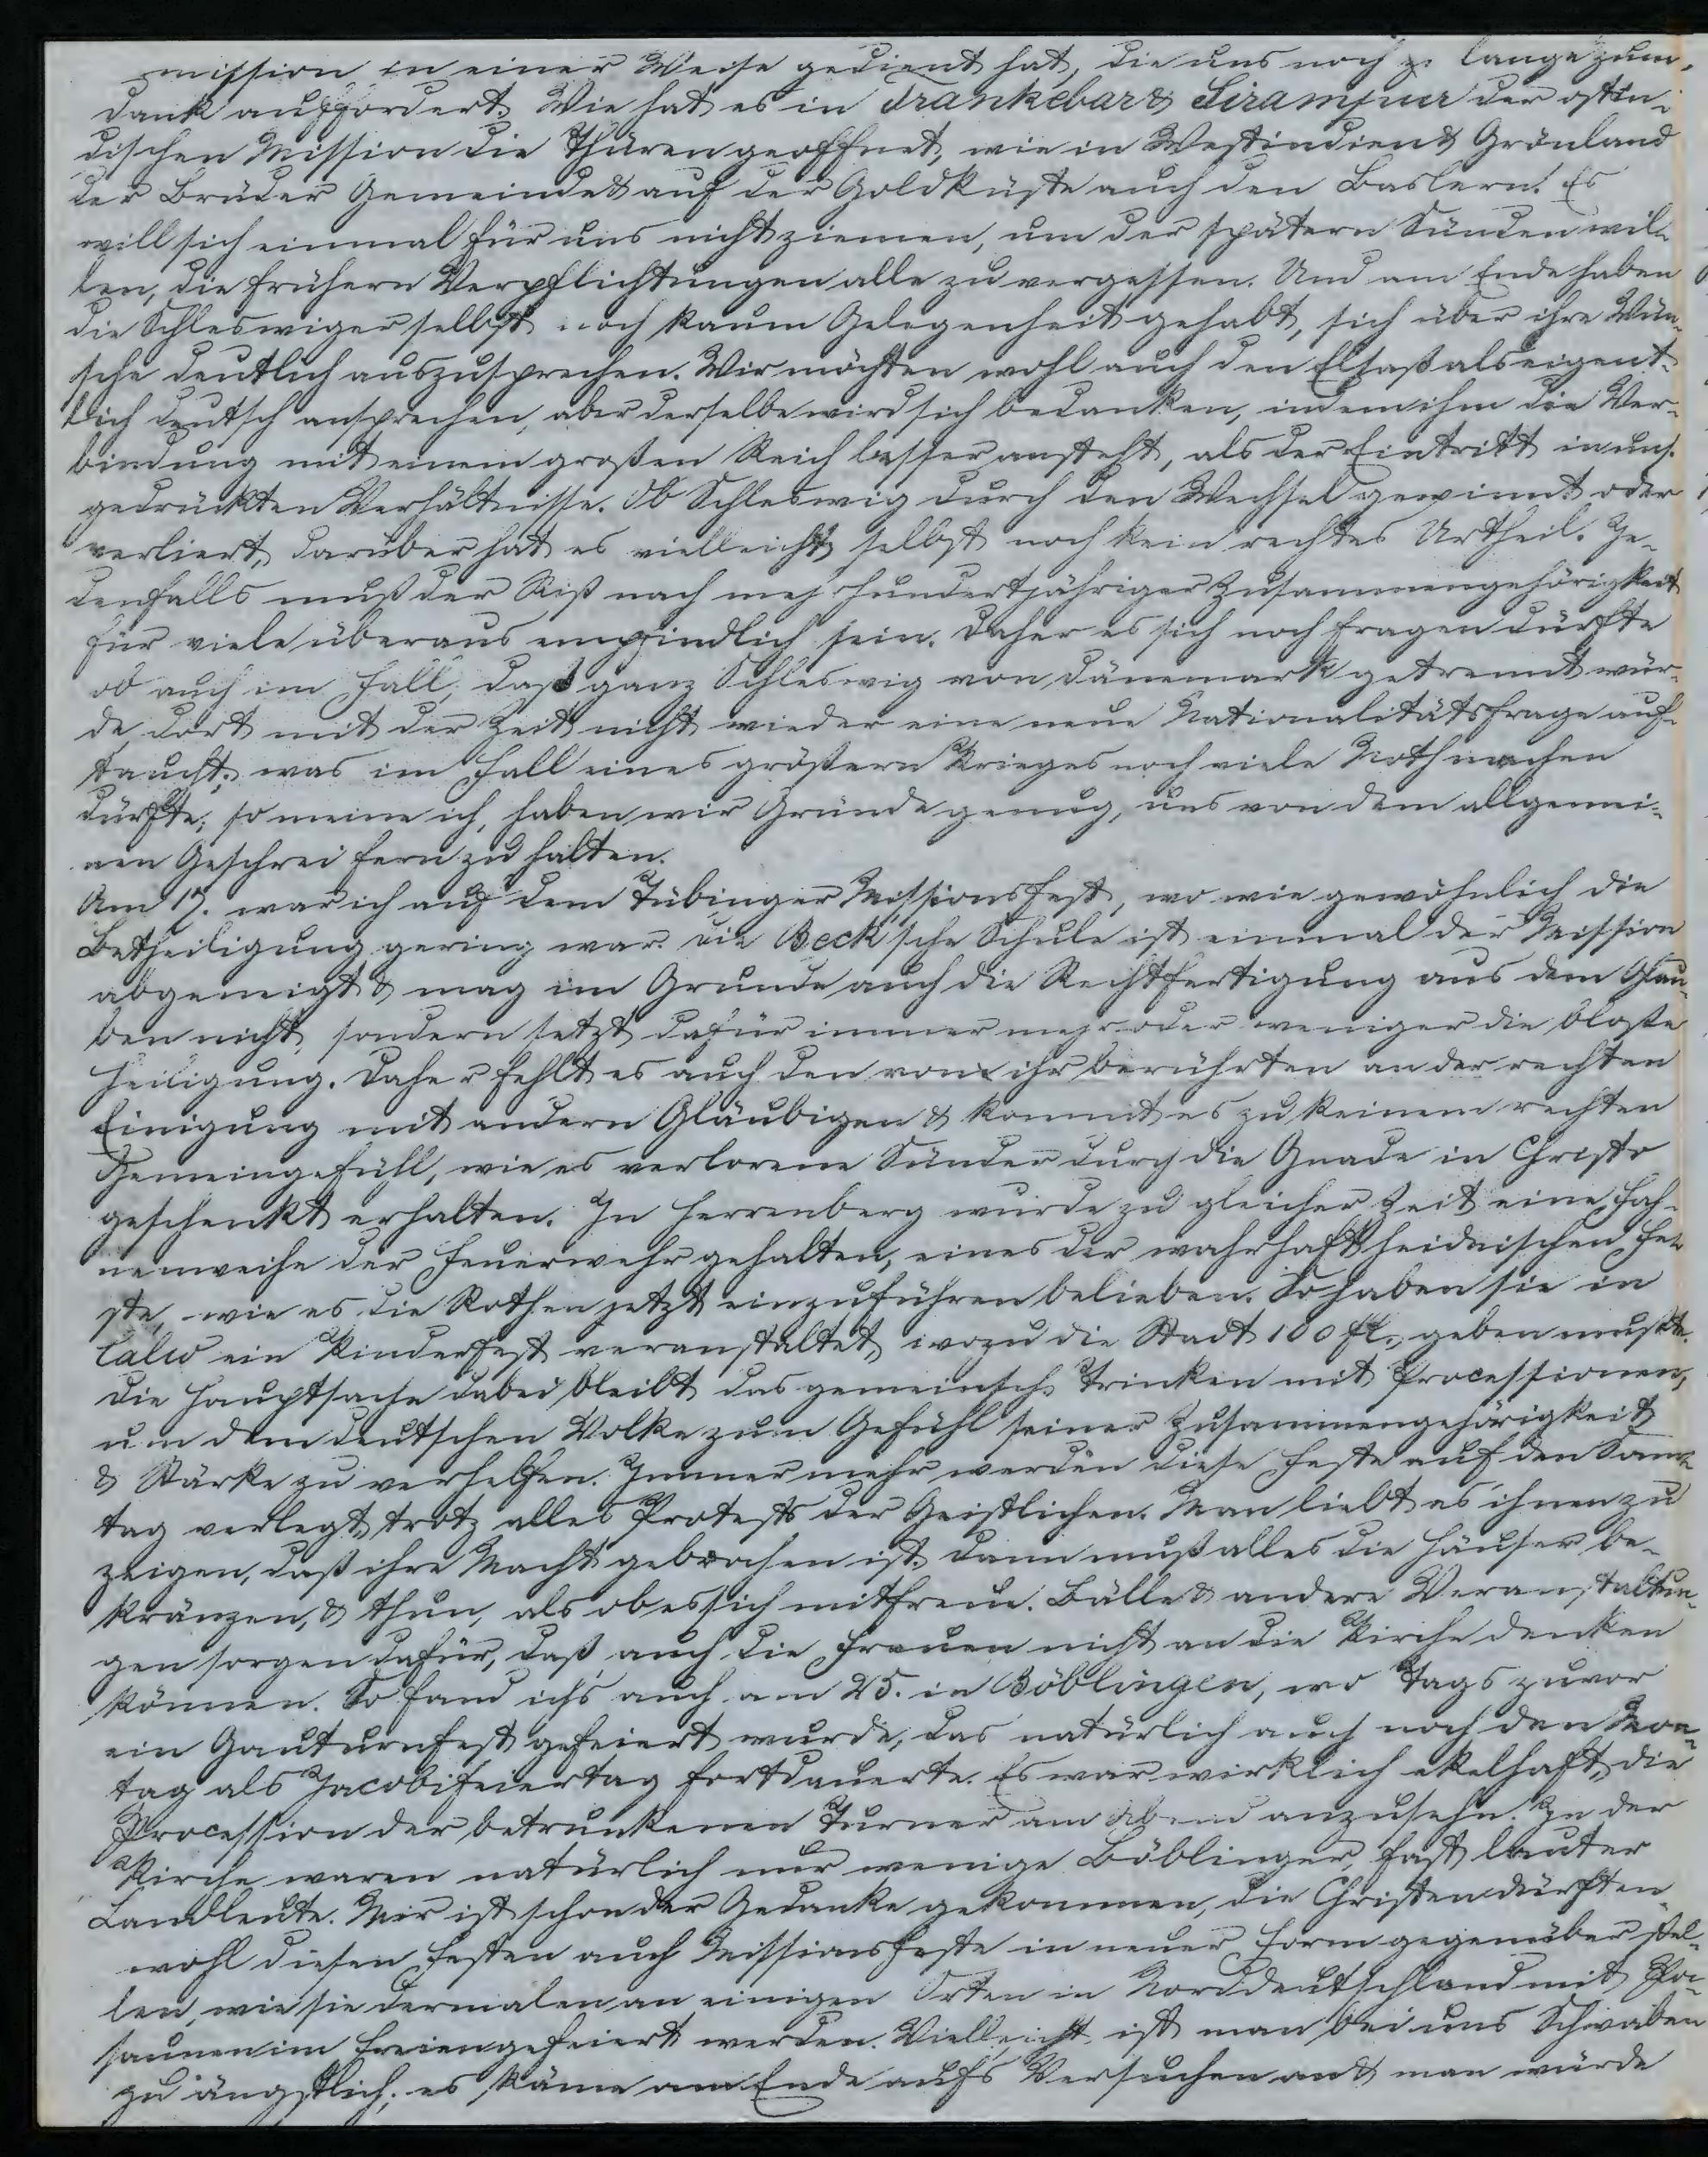 mission in einer Weise gedient hat, die uns noch lange zum
Dank auffordert. Wie hat es in Trankebar & Sirampur der ostin-
dischen Mission die Thüren geöffnet, wie in Westindien & Grönland
der Brüder Gemeinde & auf der Goldküste auch den Baslern! Es
will sich einmal für uns nicht ziemen, um der spätern Sünden wil-
len, die frühern Verpflichtungen alle zu vergessen. Und am Ende haben
die Schleswiger selbst noch kaum Gelegenheit gehabt, sich über ihre Wün-
sche deutlich auszusprechen. Wir möchten wohl auch den Elsaß als eigent-
lich deutsch ansprechen, aber derselbe wird sich bedanken, indem ihm die Ver-
bindung mit einem großen Reich besser ansteht, als der Eintritt in uns.
gedrückten Verhältnisse. Ob Schleswig durch den Wechsel gewinnt oder
verliert, darüber hat es vielleicht selbst noch kein rechtes Urtheil. Je-
denfalls muß der Riß nach mehrhundertjähriger Zusammengehörigkeit
für viele überaus empfindlich sein. Daher es sich noch fragen dürfte
ob auch im Fall, daß ganz Schleswig von Dänemark getrennt wür-
de, dort mit der Zeit nicht wieder eine neue Nationalitätsfrage auf-
taucht, was im Fall eines größern Krieges noch viele Noth machen
dürfte; so meine ich, haben wir Gründe genug, uns von dem allgemei-
nen Geschrei fern zu halten.
Am 17. war ich auf dem Tübinger Missionsfest, wo wie gewöhnlich die
Betheiligung gering war. Die Beck'sche Schule ist einmal der Mission
abgeneigt & mag im Grunde auch die Rechtfertigung aus dem Glau-
ben nicht, sondern setzt dafür immer mehr oder weniger die bloße
Heiligung. Daher fehlt es auch den von ihr berührten an der rechten
Einigung mit andern Gläubigen & kommt es zu keinem rechten
Gemeingefühl, wie es verlorene Sünder durch die Gnade in Christo
geschenkt erhalten. In Herrenberg wurde zu gleicher Zeit eine Fah-
nenweihe der Feuerwehr gehalten, eines der wahrhaft heidnischen Fe-
ste, wie es die Rothen jetzt einzuführen belieben. So haben sie in
Calw ein Kinderfest veranstaltet, wozu die Stadt 100 fl. geben mußte.
Die Hauptsache dabei bleibt das gemeinsch. Trinken mit Processionen,
um dem deutschen Volke zum Gefühl seiner Zusammengehörigkeit
& Stärke zu verhelfen. Immer mehr werden diese Feste auf den Sonn-
tag verlegt, trotz alles Protests der Geistlichen. Man liebt es, ihnen zu
zeigen, daß ihre Macht gebrochen ist. Dann muß alles die Häuser be-
kränzen, & thun, als ob es sich mitfreue. Bälle & andere Veranstaltun-
gen sorgen dafür, daß auch die Frauen nicht an die Kirche denken
können. So fand ichs auch am 25. in Böblingen, wo Tags zuvor
ein Gauturnfest gefeiert wurde, das natürlich auch noch den Mon-
tag als Jacobifeiertag fortdauerte. Es war wirklich ekelhaft, die
Procession der betrunkenen Turner am Abend anzusehn. In der
Kirche waren natürlich nur wenige Böblinger, fast lauter
Landleute. Mir ist schon der Gedanke gekommen, die Christen dürften
wohl diesen Festen auch Missionsfeste in neuer Form gegenüber stel-
len, wie sie dermalen an einigen Orten in Norddeutschland mit Po-
saunen im Freien gefeiert werden. Vielleicht ist man bei uns Schwaben
zu ängstlich; es käme am Ende aufs Versuchen an & man würde